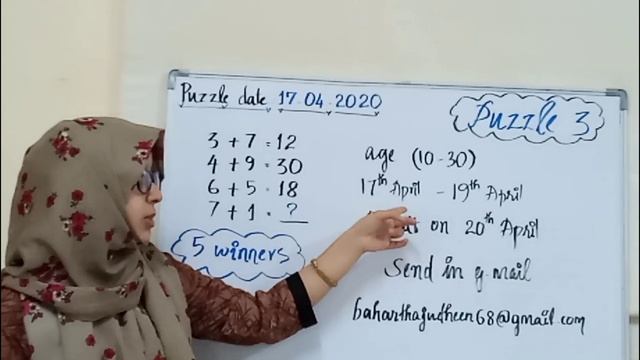 Puzzle date 17.04.2020
Puzzle 3
3 + 7 = 12
4 + 9 = 30
6 + 5 = 18
7 + 1 = ?
5 winners
age (10-30)
17th April - 19th April
on 20th April
Send in g.mail
baharthajudheen68@gmail.com